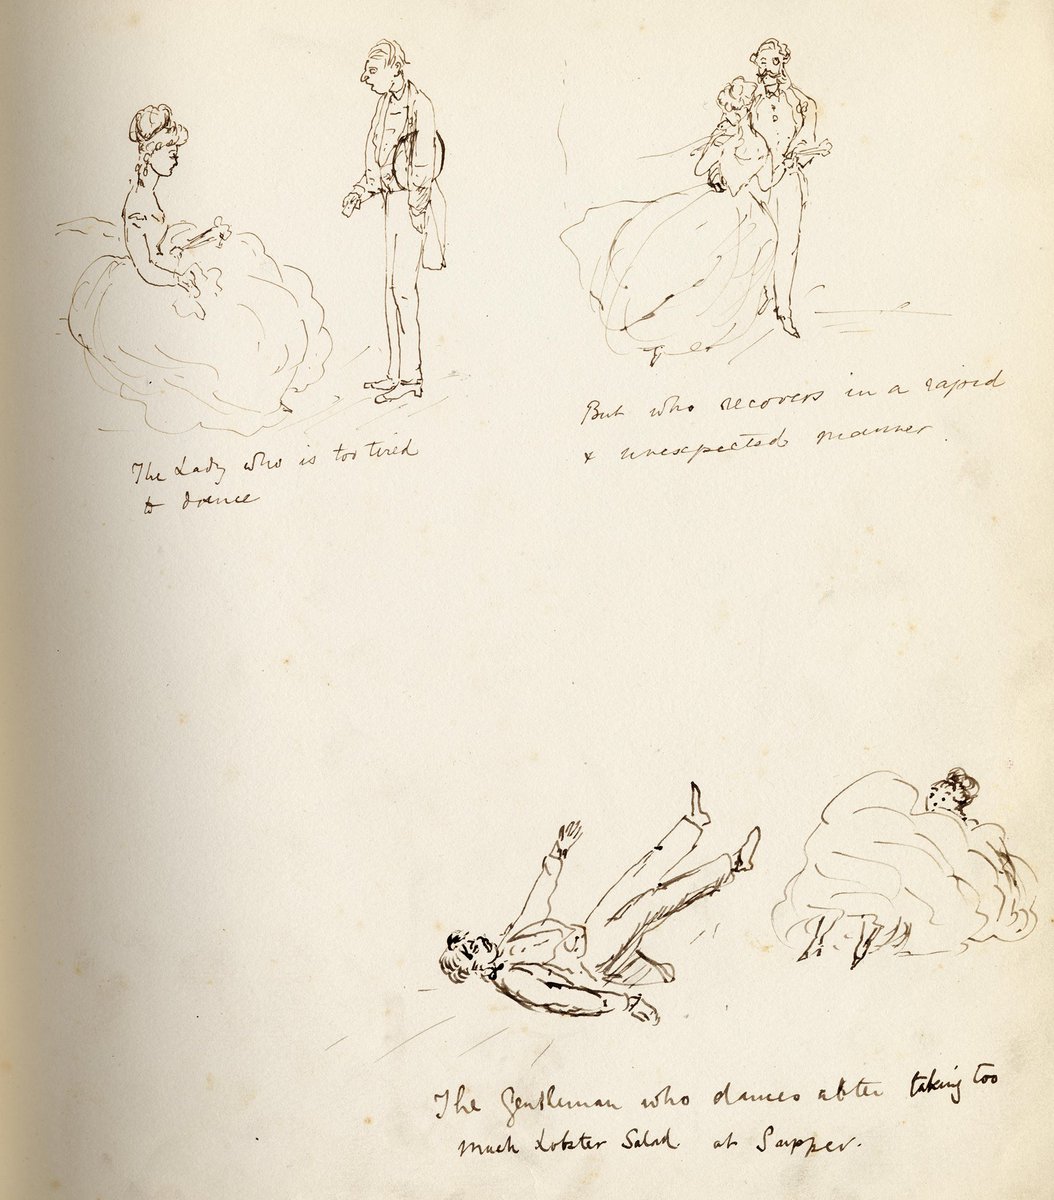 The Lady who is too tired
to dance
But who recovers in a rapid
& unexpected manner.
The Gentleman who dances after taking too
much Lobster Salad at Supper.